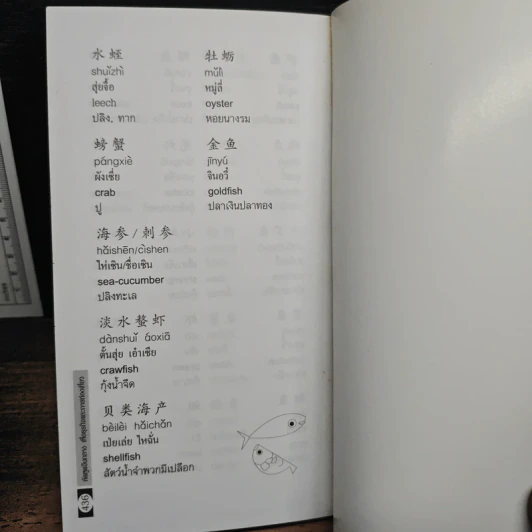 水蛭
shuǐzhì
สุ่ยจื้อ
leech
ปลิง, ทาก
牡蛎
mǔlì
หมู่ลี่
oyster
หอยนางรม
螃蟹
pángxiè
ผังเซี่ย
crab
ปู
金鱼
jīnyú
จินอวี๋
goldfish
ปลาเงินปลาทอง
海参/刺参
hǎishēn/cìshen
ไห่เซิน/ชื่อเซิน
sea-cucumber
ปลิงทะเล
淡水螯虾
dànshuǐ áoxiā
ตั้นสุ่ย เอ๋าเซีย
crawfish
กุ้งน้ำจืด
贝类海产
bèilèi hǎichǎn
เป้ยเล่ย ไหฉั่น
shellfish
สัตว์น้ำจำพวกมีเปลือก
436